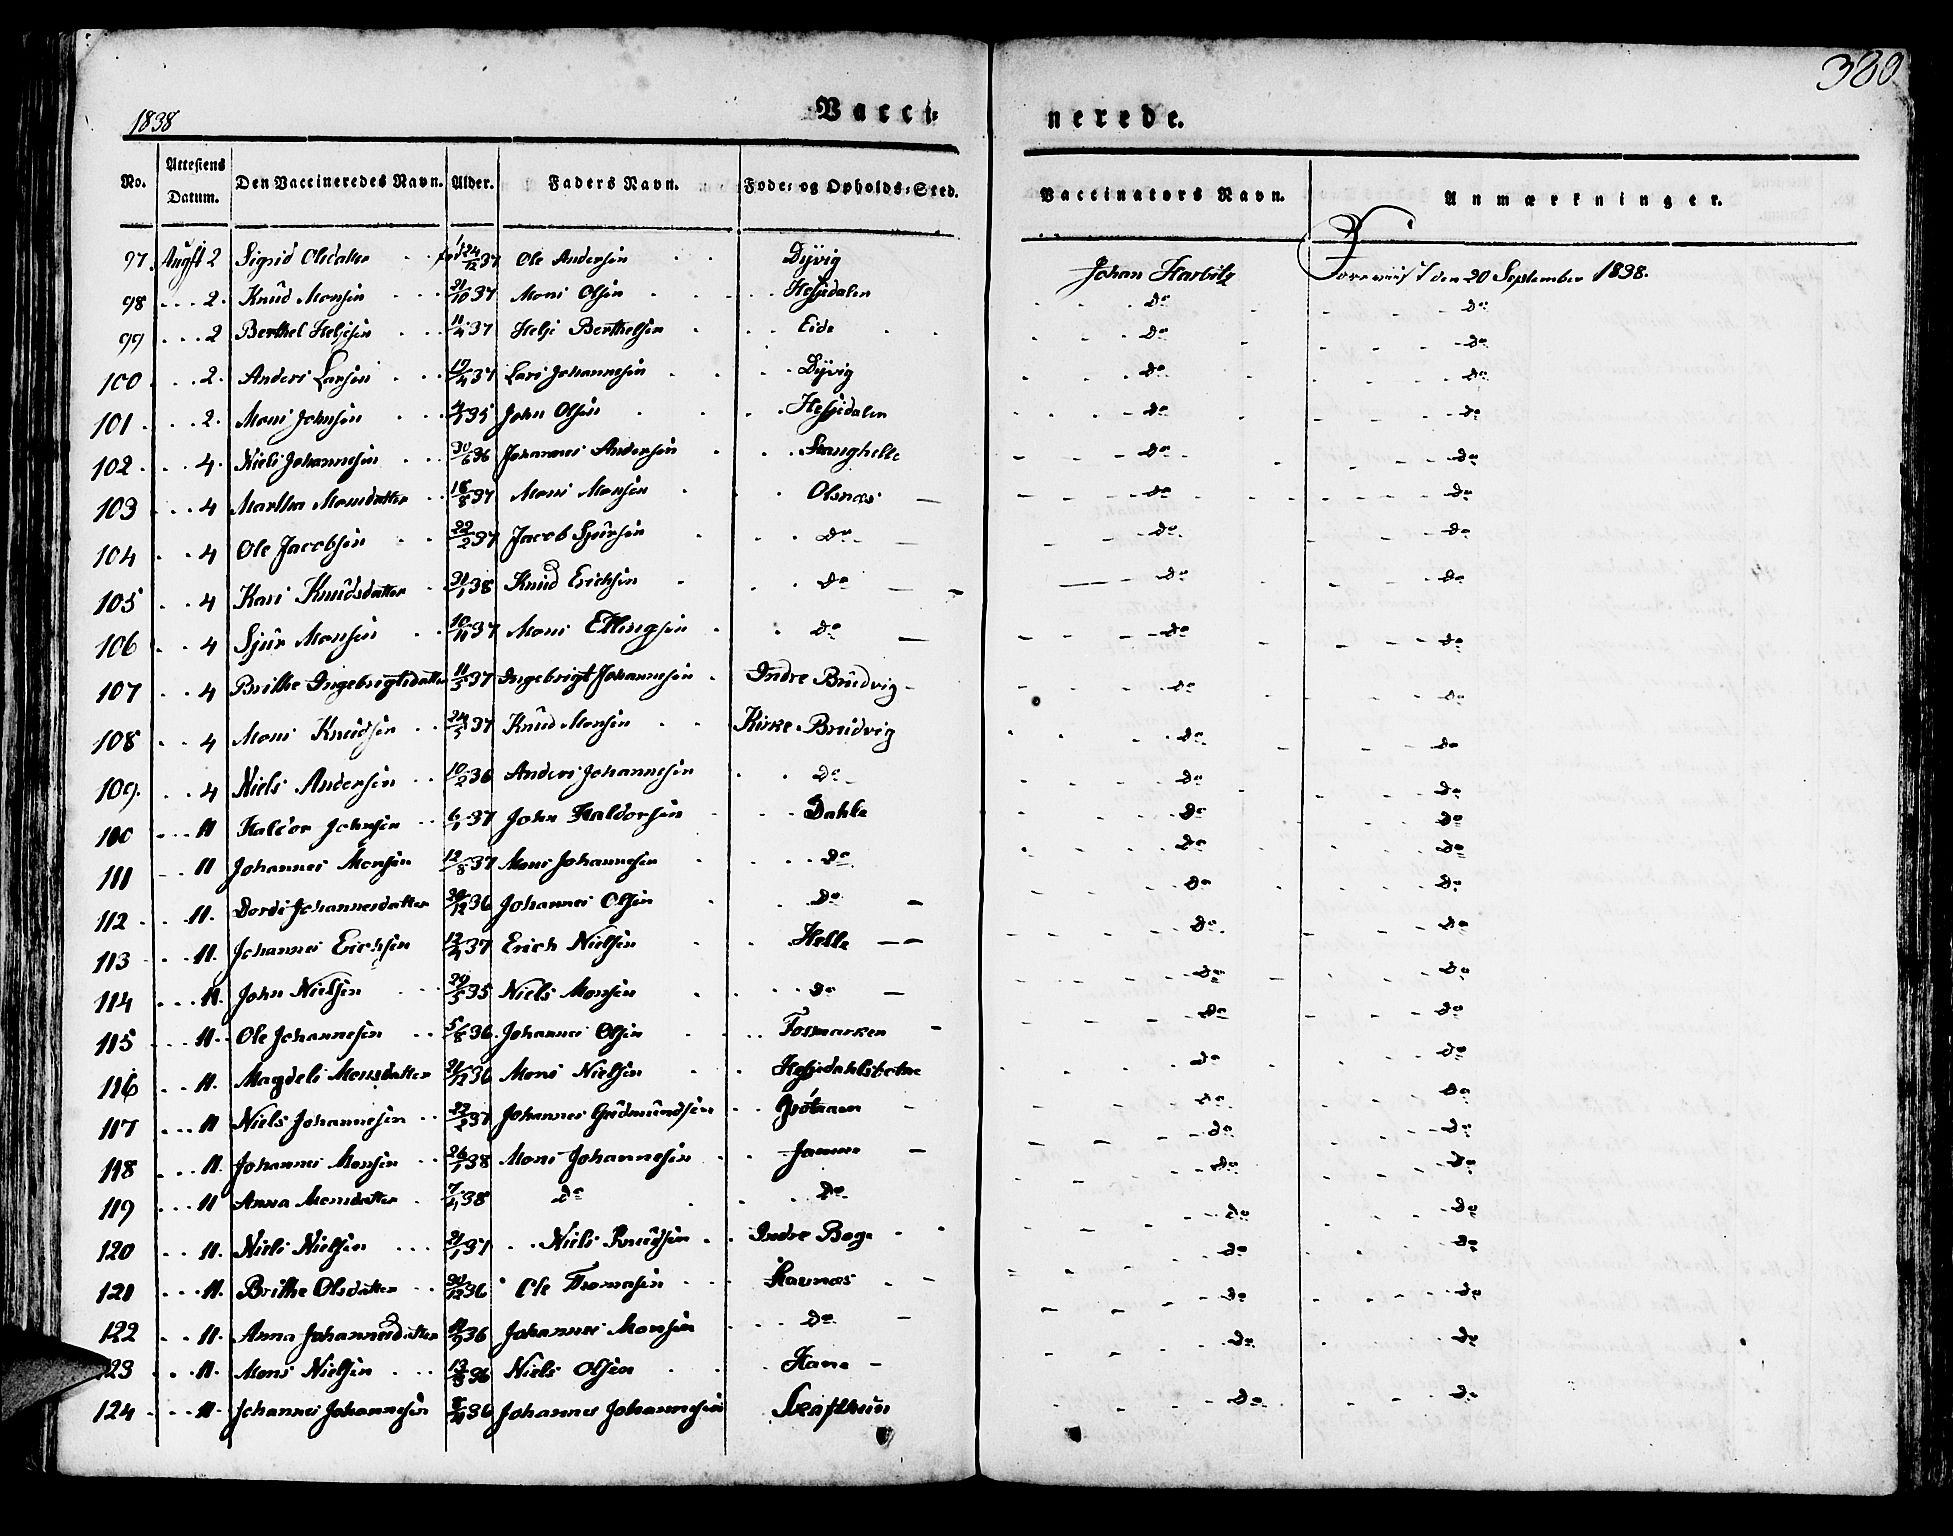 380
1838
Vacci=
nerede.
No. Attestens Datum. Den Vaccineredes Navn. Alder. Faders Navn. Føde= og Opholds=Sted. Vaccinators Navn. Anmærkninger.
97. August 2 Sigrid Olsdatter 24/12 37 Ole Andersen Dyvig Johan Harbitz Foreviist den 20 September 1838.
98 2. Knud Monsen 21/10 37 Mons Olsen Hesjedalen do do
99 2 Berthel Heljesen 11/4 37 Helje Berthelsen Eide do do
100 2. Anders Larsen 19/4 37 Lars Johannesen Dyvig do do
101 2. Mons Johnsen 35 John Olsen Hesjedalen do do
102 4. Niels Johannesen 30/6 36 Johannes Andersen Stanghelle do do
103 4 Martha Monsdatter 18/8 37 Mons Monsen Olsnæs do do
104 4 Ole Jacobsen 22/2 37 Jacob Sjursen do do do
105 4 Kari Knudsdatter 31/1 38 Knud Erichsen do do do
106 4 Sjur Monsen 10/11 37 Mons Ellingsen do do do
107 4 Brithe Ingebrigtsdatter 11/3 37 Ingebrigt Johannesen Indre Brudvig do do
108 4 Mons Knudsen 24/5 37 Knud Monsen Kirke Brudvig do do
109. 4 Niels Andersen 10/2 36 Anders Johannesen do do do
110 11 Haldor Johnsen 6/1 37 John Haldorsen Dahle do do
111 11 Johannes Monsen 12/8 37 Mons Johannesen do do do
112 11. Dorde Johannesdatter 36 Johannes Olsen do do do
113 11. Johannes Erichsen 37 Erich Nielsen Helle do do
114 11. John Nielsen 20/5 35 Niels Monsen do do do
115 11. Ole Johannesen 5/8 36. Johannes Olsen Fosmarken do do
116 11. Magdeli Monsdatter 21/12 36 Mons Nielsen Hesjedahlsbotne do do
117 11 Niels Johannesen 22/2 37 Johannes Gudmundsen do do
118 11. Johannes Monsen 26/1 38 Mons Johannesen Jamne do do
119 11 Anna Monsdatter 38 do do do do
120 11. Niels Nielsen 21/1 37 Niels Knudsen Indre Boge do do
121 11. Brithe Olsdatter 30/12 36 Ole Thomasen Stavnæs do do
122 11. Anna Johannesdatter 36 Johannes Monsen do do do
123 11. Mons Nielsen 13/8 36 Niels Olsen Hane do do
124 11. Johannes Johannesen 36 Johannes Johannesen do do